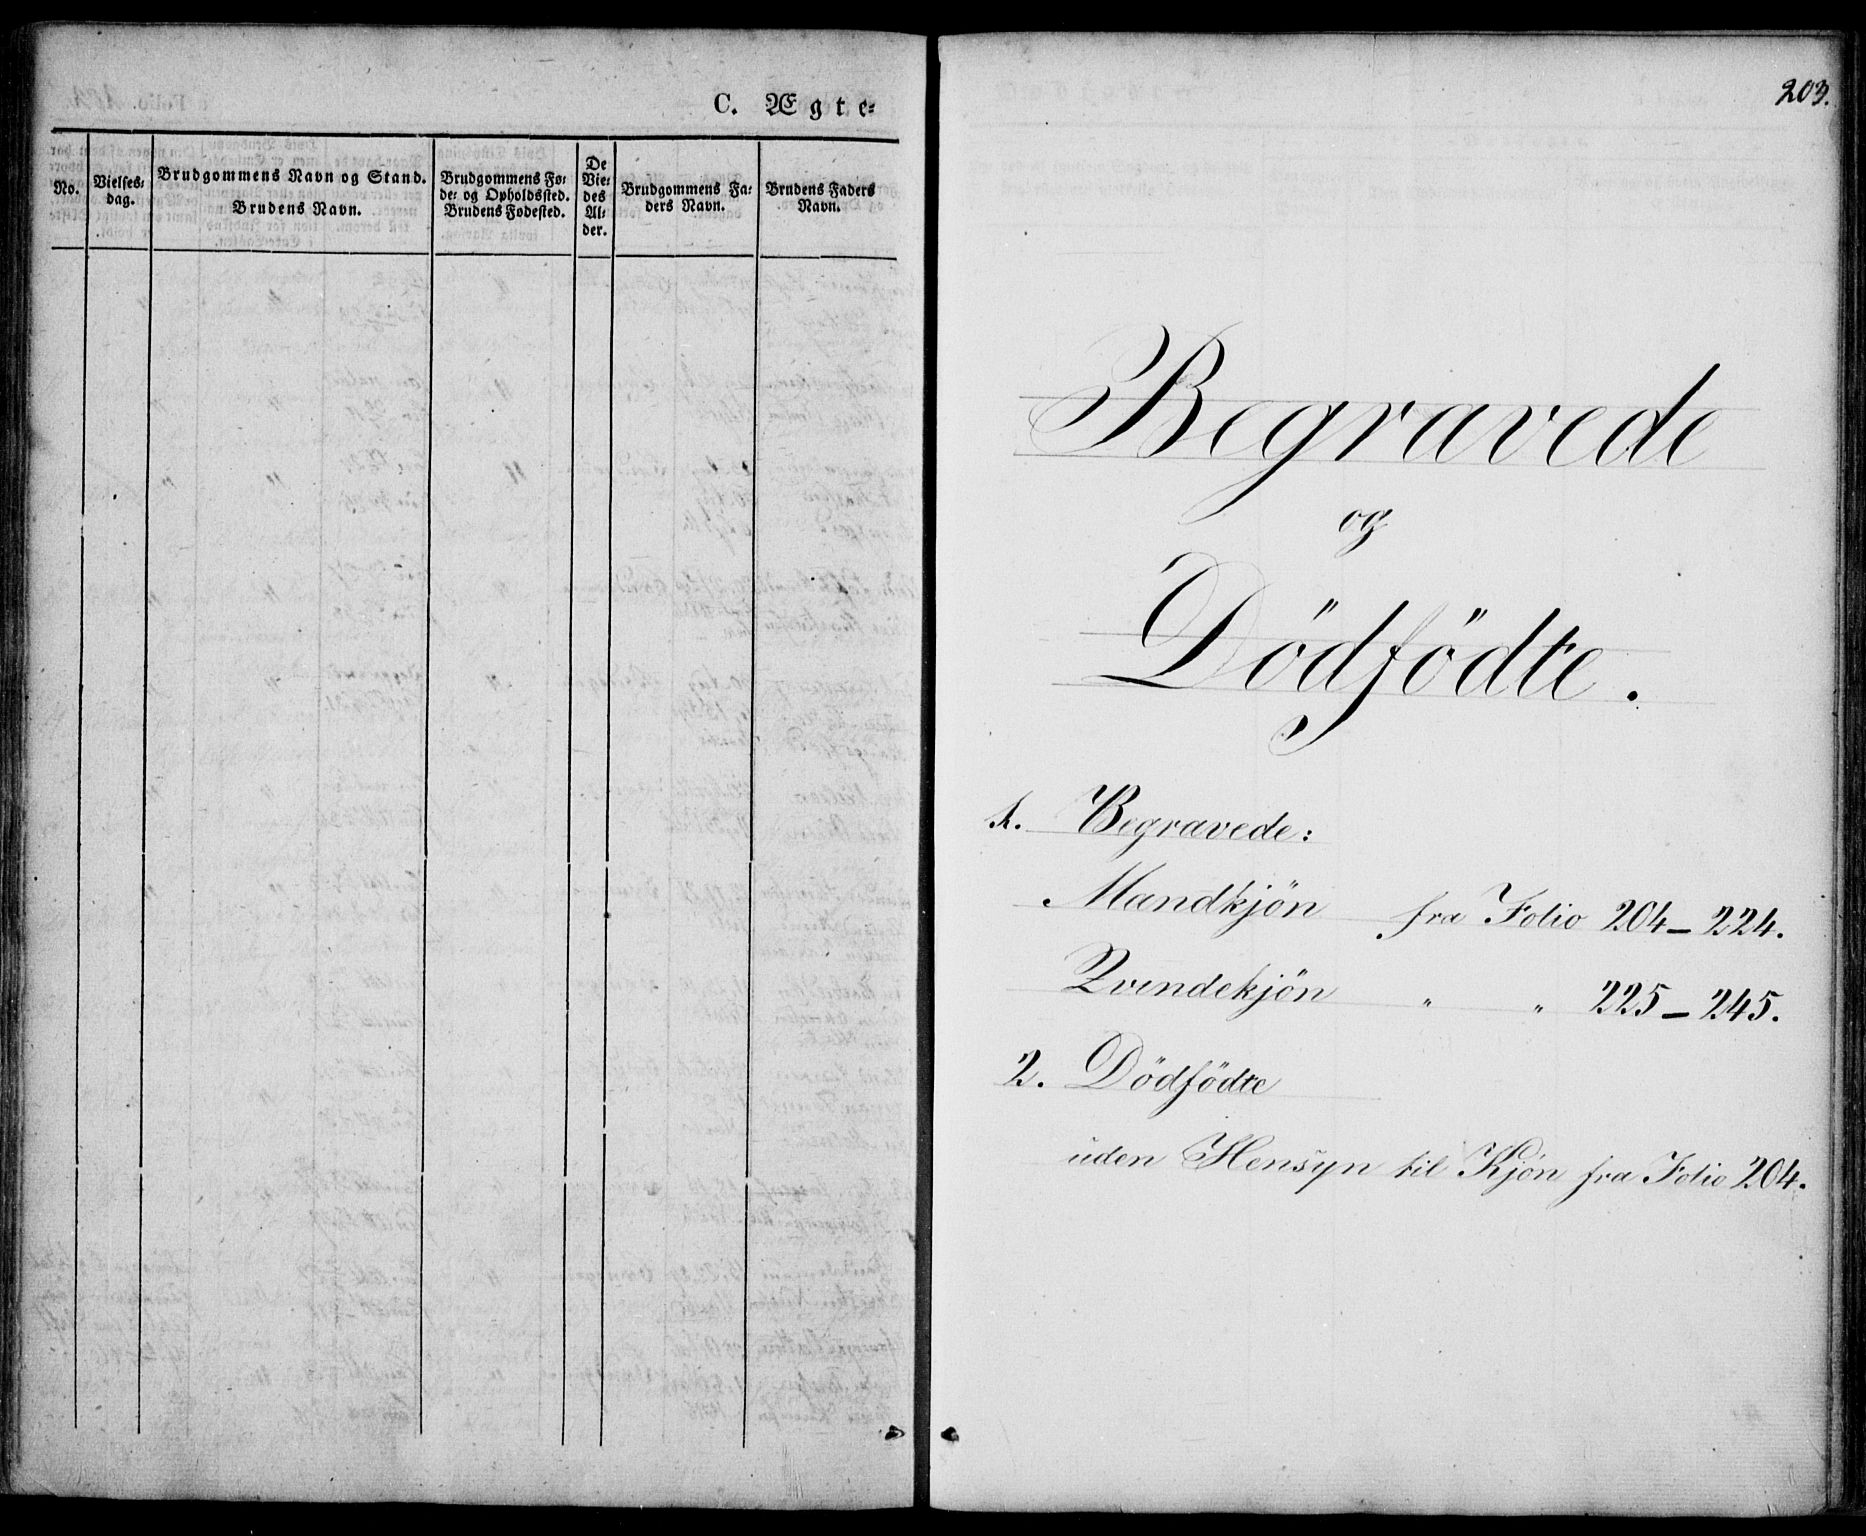 C. Ægte=
No.
Vielses=
dag.
Brudgommens Navn og Stand.
Brudens Navn.
Brudgommens Fø=
de= og Opholdssted.
Brudens Fødested.
De
Vie=
des
Al=
der.
Brudgommens Fa=
ders Navn.
Brudens Faders
Navn.
203.
Begravede
og
Dödfödte.
1. Begravede:
Mandkjön fra Folio 204 - 224.
Qvindekjön " " 225 - 245.
2. Dödfödte
uden Hensyn til Kjön fra Folio 204.